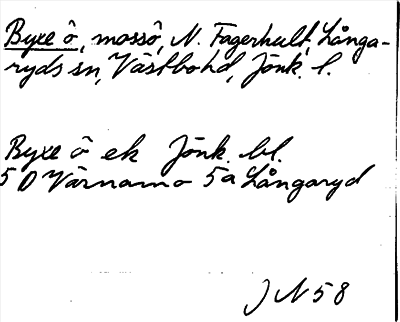 Byxe ö, mossö, N. Fagerhult, Långa-
ryds sn, Västbo hd, Jönk. l.
Byxe ö ek Jönk. bl.
5 D Värnamo 5a Långaryd
J N 58